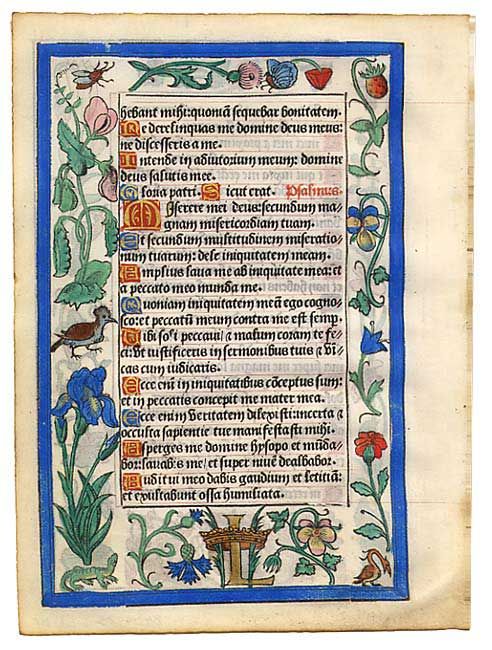 hebant mihi: quoniā sequebar bonitatem.
Ne derelinquas me domine deus meus:
ne discesseris a me.
Intende in adiutorium meum: domine
deus salutis mee.
Gloria patri. Sicut erat. Psalmus.
Miserere mei deus: secundum ma/
gnam misericordiam tuam.
Et secundum multitudinem miseratio/
num tuarum: dele iniquitatem meam.
Amplius laua me ab iniquitate mea: et
a peccato meo munda me.
Quoniam iniquitatem meā ego cogno/
sco: et peccatū meum contra me est semp.
Tibi soli peccaui/ & malum coram te fe/
ci: vt iustificeris in sermonibus tuis & vī/
cas cum iudicaris.
Ecce enī in iniquitatibus cōceptus sum:
et in peccatis concepit me mater mea.
Ecce enī veritatem dilexisti: incerta &
occulta sapientie tue manifestasti mihi.
Asperges me domine hysopo et mūda/
bor: lauabis me/ et super niuē dealbabor.
Auditui meo dabis gaudium et letitiā:
et exultabunt ossa humiliata.
L